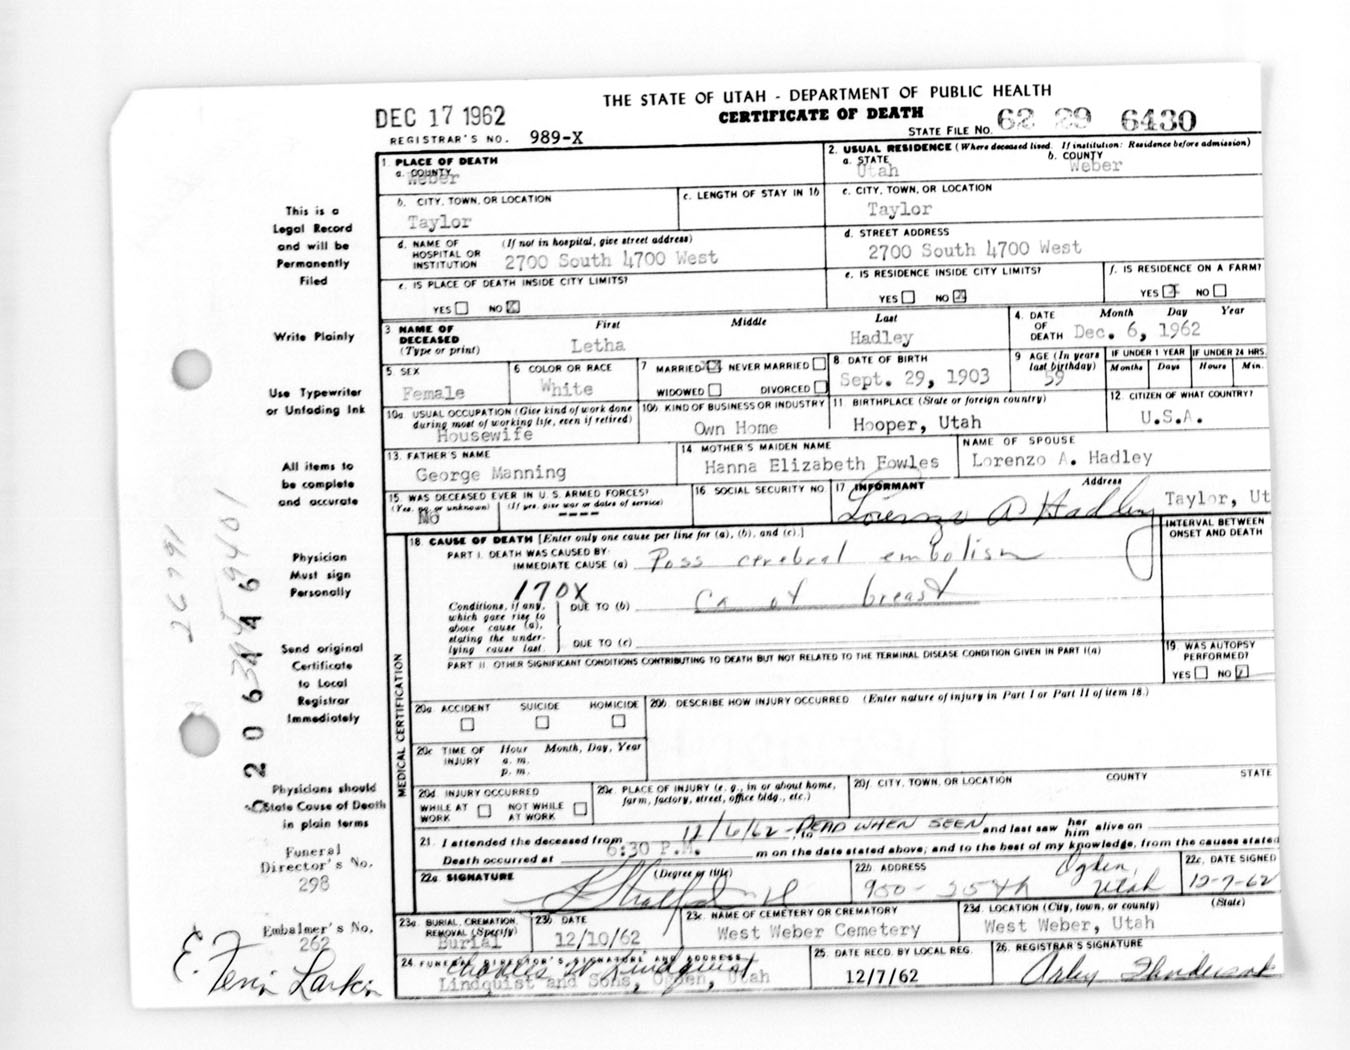 THE STATE OF UTAH - DEPARTMENT OF PUBLIC HEALTH
DEC 17 1962
CERTIFICATE OF DEATH
STATE FILE NO. 62 29 6430
REGISTRAR'S NO. 989-X
1. PLACE OF DEATH
a. COUNTY
Weber
2. USUAL RESIDENCE (Where deceased lived. If institution: Residence before admission)
a. STATE
Utah
b. COUNTY
Weber
b. CITY, TOWN, OR LOCATION
Taylor
c. LENGTH OF STAY IN 1b
c. CITY, TOWN, OR LOCATION
Taylor
d. NAME OF HOSPITAL OR INSTITUTION
(If not in hospital, give street address)
2700 South 4700 West
d. STREET ADDRESS
2700 South 4700 West
e. IS PLACE OF DEATH INSIDE CITY LIMITS?
YES NO X
e. IS RESIDENCE INSIDE CITY LIMITS?
YES NO X
f. IS RESIDENCE ON A FARM?
YES X NO
3 NAME OF DECEASED
(Type or print)
First
Letha
Middle
Last
Hadley
4. DATE OF DEATH
Month Day Year
Dec. 6, 1962
5 SEX
Female
6 COLOR OR RACE
White
7 MARRIED X NEVER MARRIED
WIDOWED DIVORCED
8 DATE OF BIRTH
Sept. 29, 1903
9 AGE (In years last birthday)
59
IF UNDER 1 YEAR
Months Days
IF UNDER 24 HRS.
Hours Min.
10a USUAL OCCUPATION (Give kind of work done during most of working life, even if retired)
Housewife
10b. KIND OF BUSINESS OR INDUSTRY
Own Home
11 BIRTHPLACE (State or foreign country)
Hooper, Utah
12. CITIZEN OF WHAT COUNTRY?
U.S.A.
13. FATHER'S NAME
George Manning
14 MOTHER'S MAIDEN NAME
Hanna Elizabeth Fowles
NAME OF SPOUSE
Lorenzo A. Hadley
15. WAS DECEASED EVER IN U.S. ARMED FORCES?
(Yes, no, or unknown)
No
(If yes, give war or dates of service)
----
16 SOCIAL SECURITY NO
17 INFORMANT
Lorenzo A Hadley
Address
Taylor, Ut
18. CAUSE OF DEATH [Enter only one cause per line for (a), (b), and (c).]
INTERVAL BETWEEN ONSET AND DEATH
PART I. DEATH WAS CAUSED BY:
IMMEDIATE CAUSE (a) Poss cerebral embolism
170X
Conditions, if any, which gave rise to above cause (a), stating the underlying cause last.
DUE TO (b) Ca of breast
DUE TO (c)
PART II. OTHER SIGNIFICANT CONDITIONS CONTRIBUTING TO DEATH BUT NOT RELATED TO THE TERMINAL DISEASE CONDITION GIVEN IN PART I(a)
19. WAS AUTOPSY PERFORMED?
YES NO
MEDICAL CERTIFICATION
20a ACCIDENT SUICIDE HOMICIDE
20b. DESCRIBE HOW INJURY OCCURRED (Enter nature of injury in Part I or Part II of item 18.)
20c TIME OF INJURY
Hour Month, Day, Year
a. m.
p. m.
20d INJURY OCCURRED
WHILE AT WORK NOT WHILE AT WORK
20e. PLACE OF INJURY (e. g., in or about home, farm, factory, street, office bldg., etc.)
20f. CITY, TOWN, OR LOCATION COUNTY STATE
21. I attended the deceased from 12/6/62 - DEAD WHEN SEEN and last saw her him alive on
Death occurred at 6:30 P.M. m on the date stated above; and to the best of my knowledge, from the causes stated
22a. SIGNATURE (Degree or title)
22b. ADDRESS
950 - 25th Ogden, Utah
22c. DATE SIGNED
12-7-62
23a BURIAL, CREMATION, REMOVAL (Specify)
Burial
23b DATE
12/10/62
23c. NAME OF CEMETERY OR CREMATORY
West Weber Cemetery
23d. LOCATION (City, town, or county) (State)
West Weber, Utah
24. FUNERAL DIRECTOR'S SIGNATURE AND ADDRESS
Charles W Lindquist
Lindquist and Sons, Ogden, Utah
25. DATE RECD. BY LOCAL REG.
12/7/62
26. REGISTRAR'S SIGNATURE
This is a
Legal Record
and will be
Permanently
Filed
Write Plainly
Use Typewriter
or Unfading Ink
All items to
be complete
and accurate
Physician
Must sign
Personally
Send original
Certificate
to Local
Registrar
Immediately
Physicians should
State Cause of Death
in plain terms
Funeral
Director's No.
298
Embalmer's No.
262
E. Ferrin Larkin